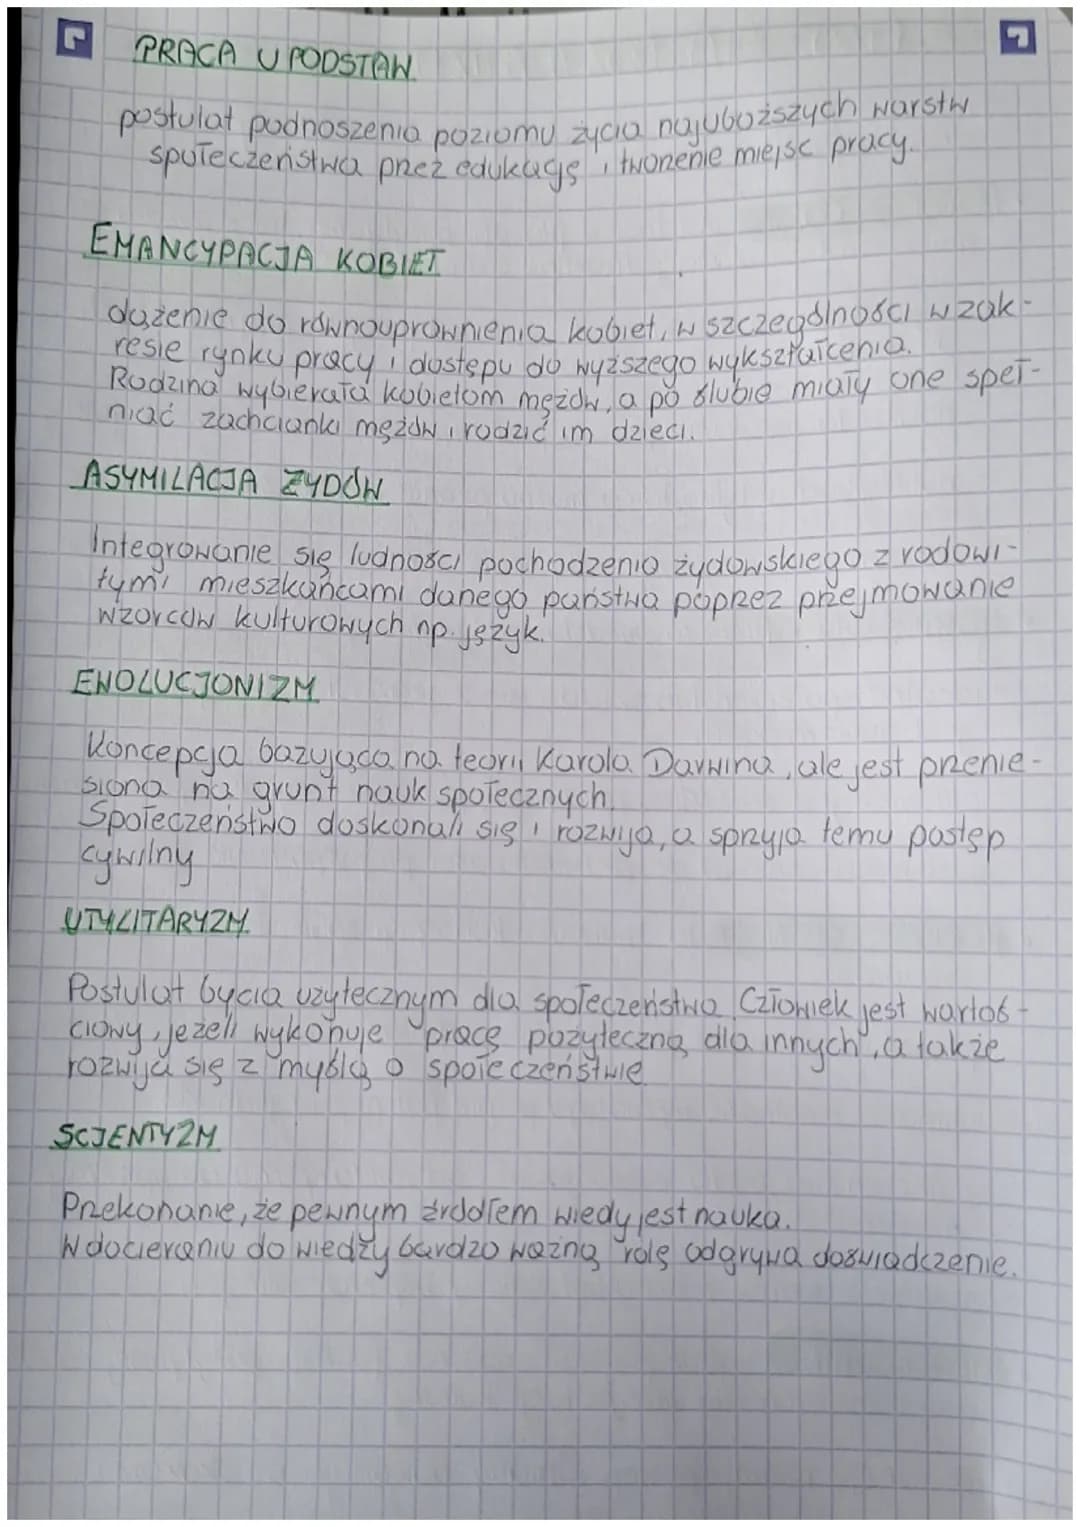 PRACA U PODSTAW
postulat podnoszenia poziomu życia najuboższych warstw
społeczeństwa przez edukację i tworzenie miejsc pracy.
EMANCYPACJA KOBIET
dążenie do równouprawnienia kobiet, w szczególności w zak-
resie rynku pracy i dostępu do wyższego wykształcenia.
Rodzina wybierała kobietom mężów, a po ślubie miały one speł-
niać zachcianki mężów i rodzić im dzieci.
ASYMILACJA ŻYDÓW
Integrowanie się ludności pochodzenia żydowskiego z rodowi-
tymi mieszkańcami danego państwa poprzez przejmowanie
wzorców kulturowych np. język.
EWOLUCJONIZM
Koncepcja bazująca na teorii Karola Darwina, ale jest przenie-
siona na grunt nauk społecznych.
Społeczeństwo doskonali się i rozwija, a sprzyja temu postęp
cywilny
UTYLITARYZM
Postulat bycia użytecznym dla społeczeństwa. Człowiek jest wartoś-
ciowy, jeżeli wykonuje pracę pożyteczną dla innych, a także
rozwija się z myślą o społeczeństwie
SCJENTYZM
Przekonanie, że pewnym źródłem wiedy jest nauka.
W docieraniu do wiedzy bardzo ważną rolę odgrywa doświadczenie.